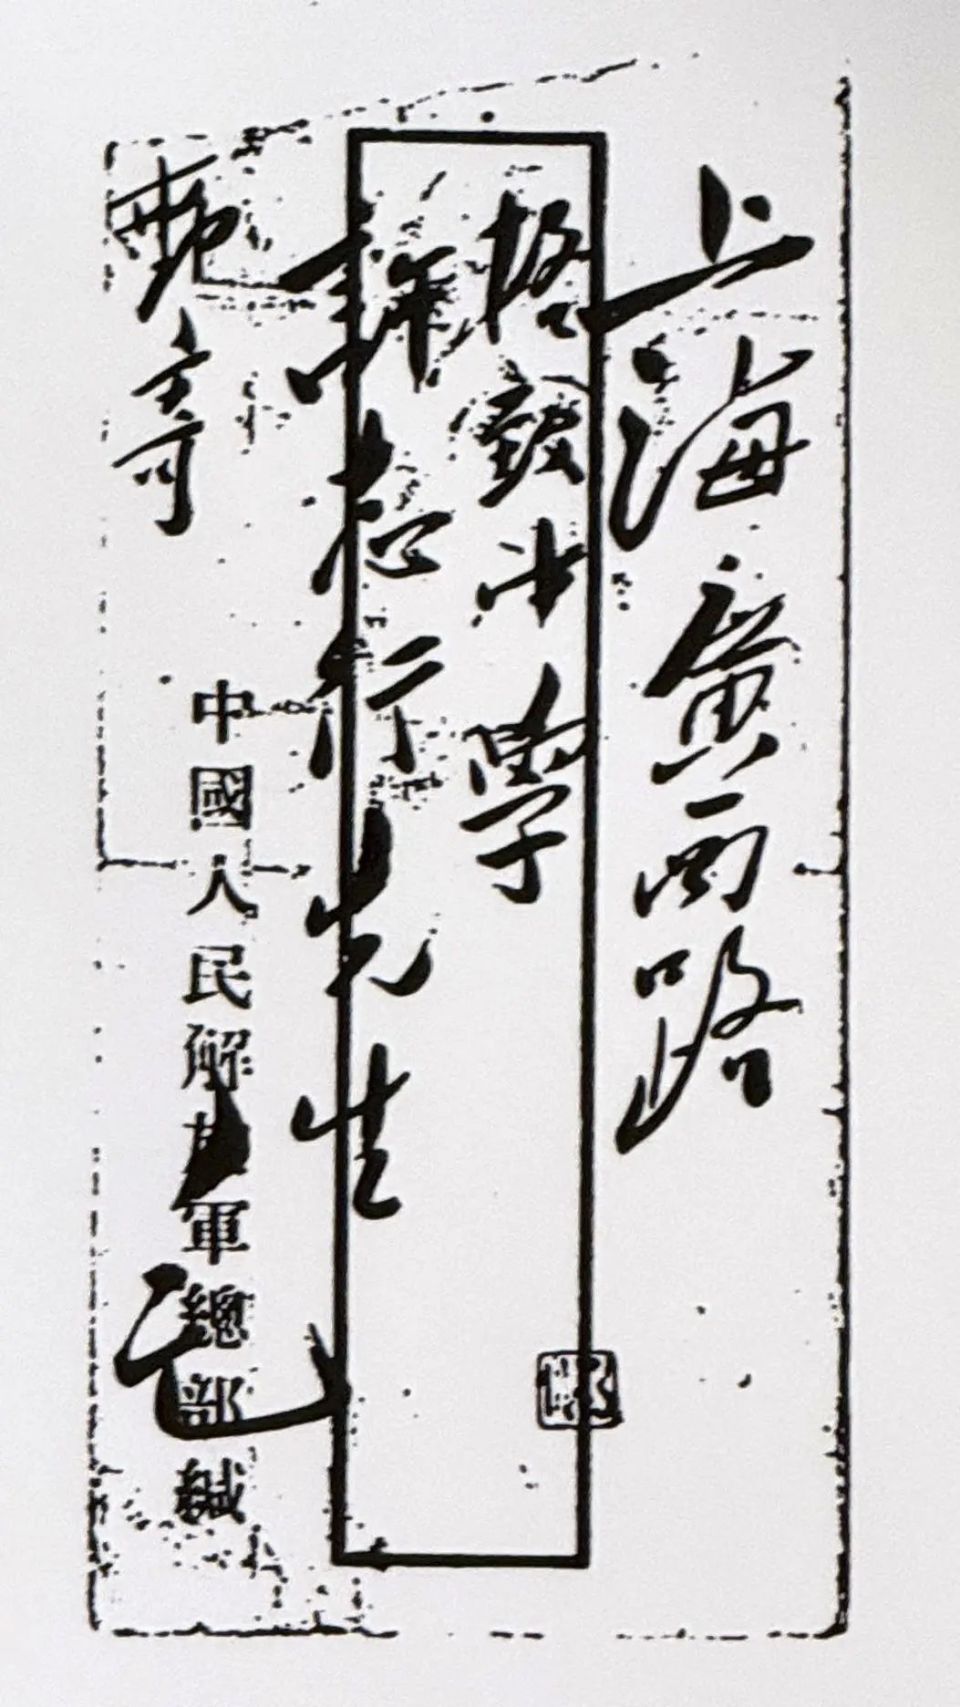 上海廣西路
格致中學
許志行先生
中國人民解放軍總部緘
毛
寄